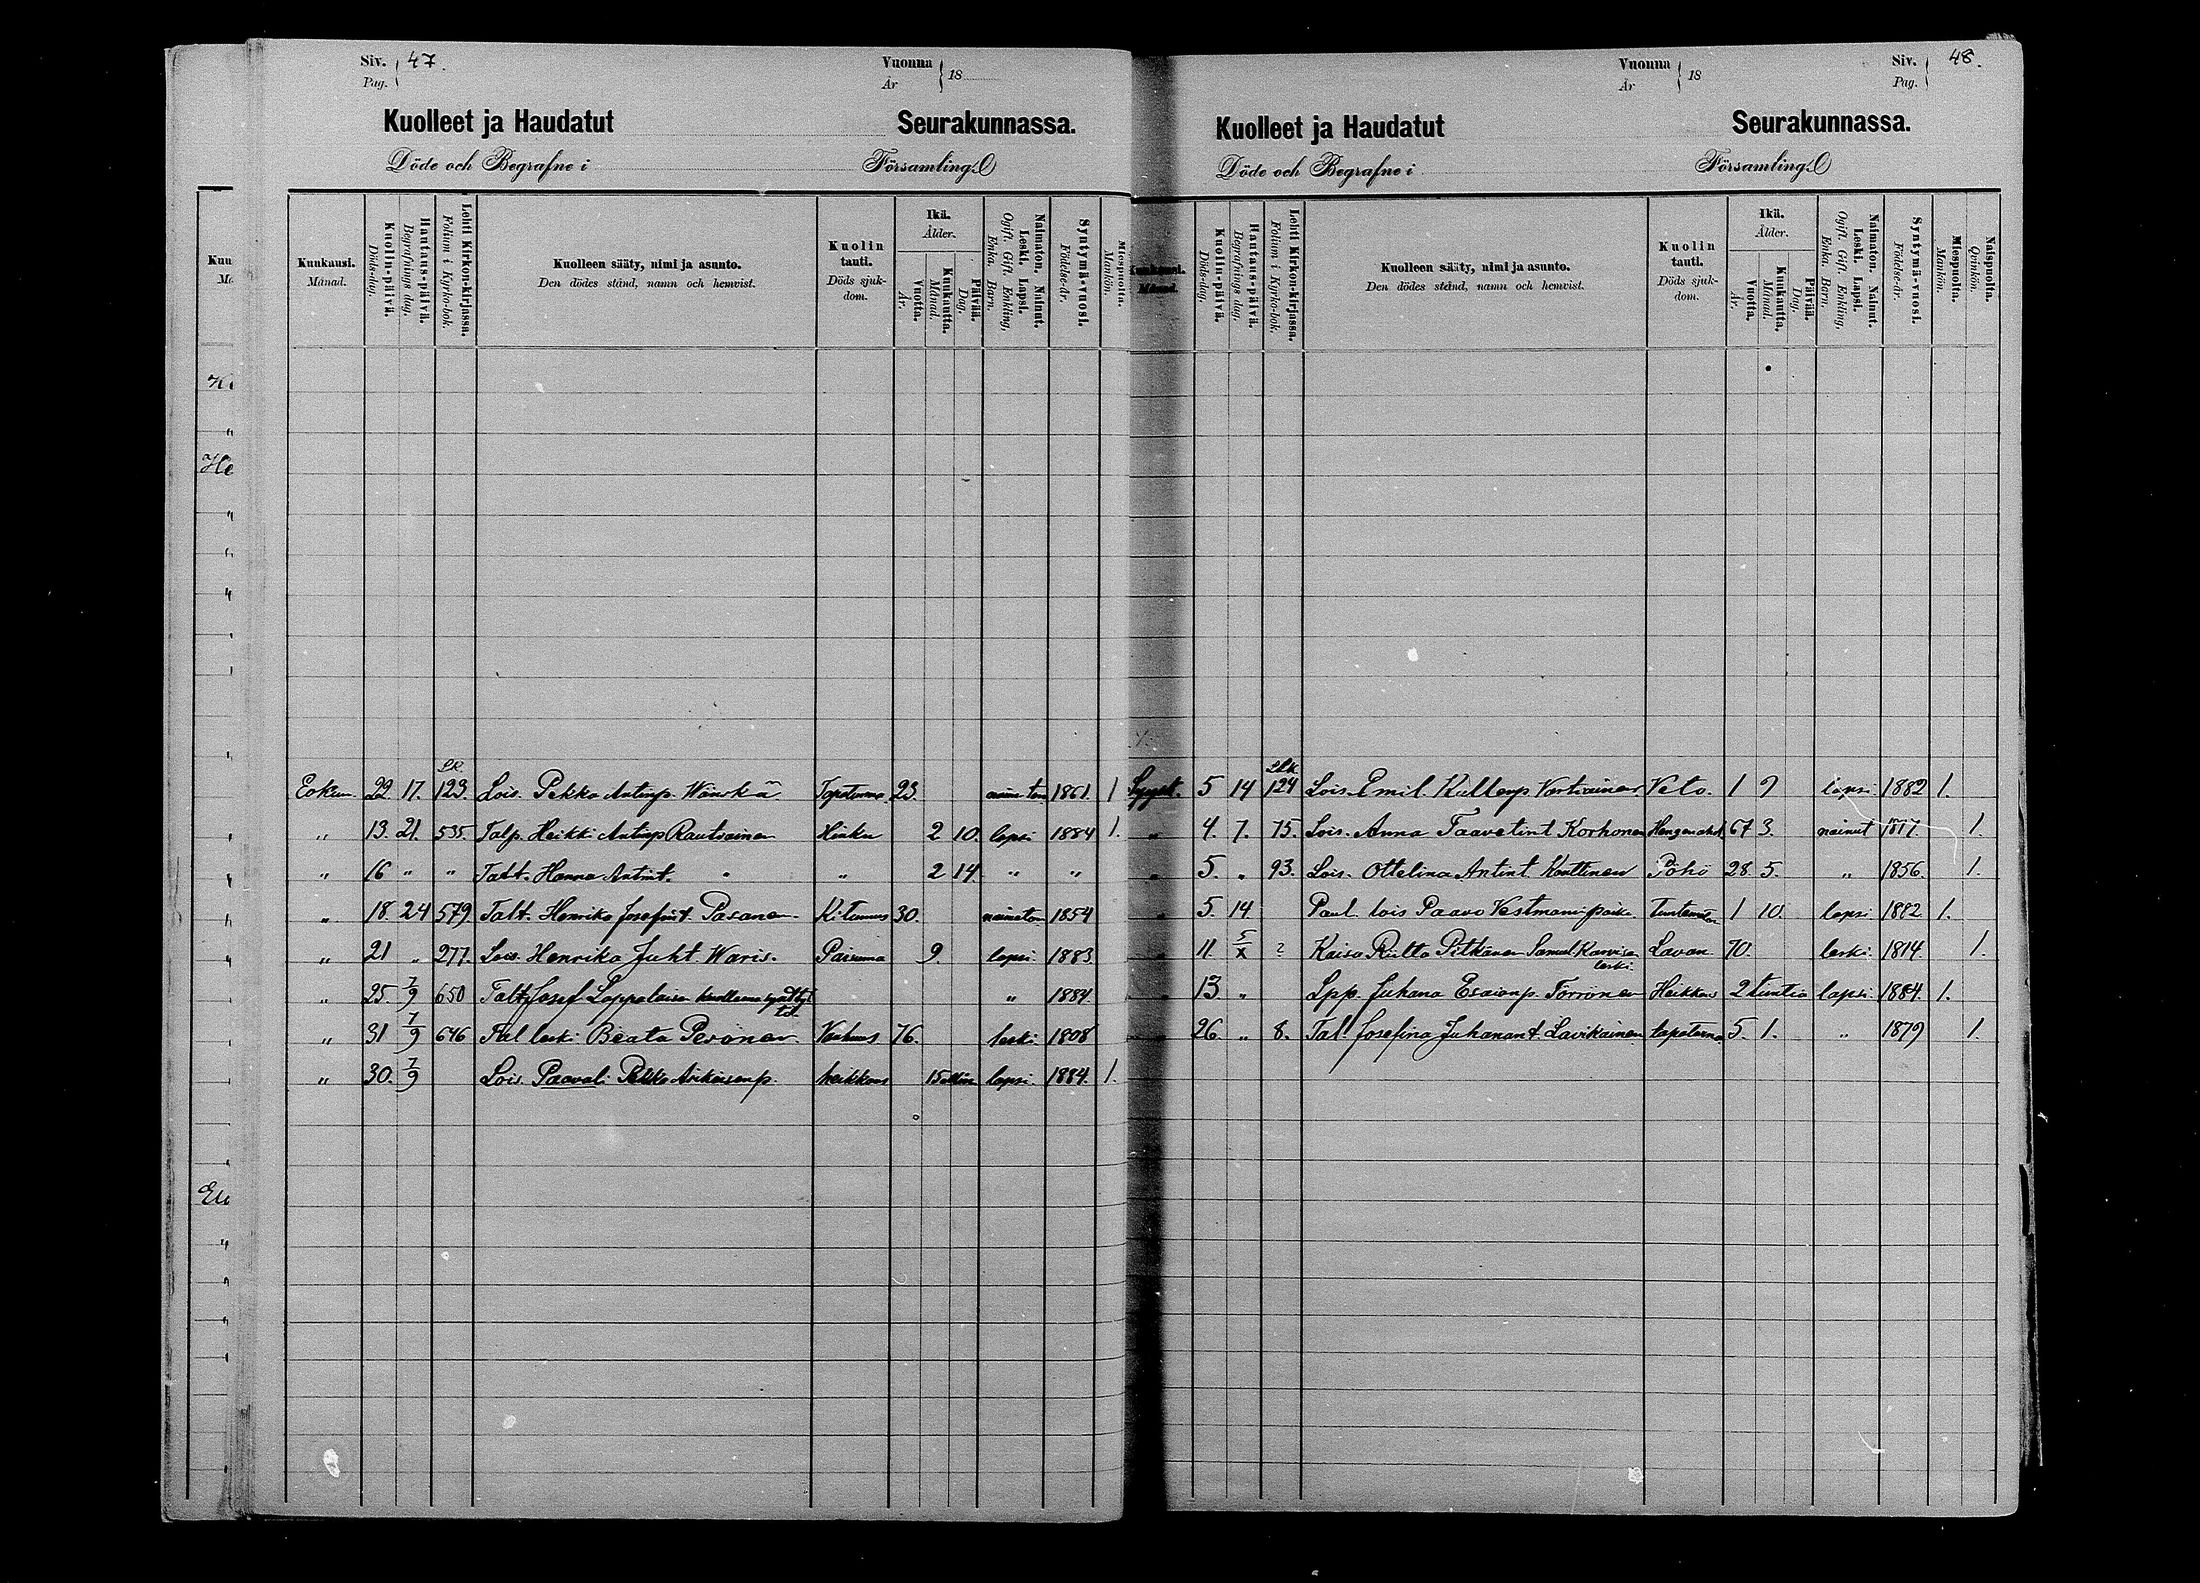 Siv. 47. Vuonna 18
Pag. År
Kuolleet ja Haudatut Seurakunnassa.
Döde och Begrafne i Församling.
Kuukausi. Månad.
Kuolin-päivä. Döds-dag.
Hautaus-päivä. Begrafnings dag.
Lehti Kirkon-kirjassa. Folium i Kyrko-bok.
Kuolleen sääty, nimi ja asunto. Den dödes stånd, namn och hemvist.
Kuolin tauti. Döds sjuk-dom.
Ikä. Ålder.
Vuotta. År.
Kuukautta. Månad.
Päivää. Dag.
Naimaton. Nainut. Leski. Lapsi. Ogift. Gift. Enkling, Enka. Barn.
Syntymä-vuosi. Födelse-år.
Miespuolta. Mankön.
22 17. 123. Lois. Pekka Antinp. Wänskä Tapaturma 23. 1861. 1
" 13. 21. 535. Talp. Heikki Antinp Rautiainen Hinku 2 10. lapsi 1884 1.
" 16 " " Talt. Hanna Antint. " " 2 14. " "
" 18. 24 579. Talt. Henrika Josefint. Pasanen Kitumus 30. naimaton 1854
" 21 " 277. Lois. Henrika Juht. Waris. Paisuma 9. lapsi. 1883
" 25. 7/9 650 Josef Lappalaisen kuolleena " 1884.
" 31 7/9 646 Tal leski Beata Pesönen Vanhuus 76. leski 1808
" 30. 7/9 Lois. Paavali Pekka heikkous 15 lapsi. 1884. 1.
Vuonna 18 Siv. 48.
År Pag.
Kuolleet ja Haudatut Seurakunnassa.
Döde och Begrafne i Församling.
Kuukausi. Månad.
Kuolin-päivä. Döds-dag.
Hautaus-päivä. Begrafnings dag.
Lehti Kirkon-kirjassa. Folium i Kyrko-bok.
Kuolleen sääty, nimi ja asunto. Den dödes stånd, namn och hemvist.
Kuolin tauti. Döds sjuk-dom.
Ikä. Ålder.
Vuotta. År.
Kuukautta. Månad.
Päivää. Dag.
Naimaton. Nainut. Leski. Lapsi. Ogift. Gift. Enkling, Enka. Barn.
Syntymä-vuosi. Födelse-år.
Miespuolta. Mankön.
Naispuolta. Qvinkön.
Syysk. 5 14 124 Lois. Emil Kallenp Vartiainen Veto. 1 9 lapsi 1882 1.
" 4. 7. 75. Lois. Anna Taavetint Korhonen 67 3. nainut 1817. 1.
" 5. " 93. Lois. Ottelina Antint Konttinen Pöhö 28. 5. " 1856. 1.
" 5. 14 lois Paavo Vestmanin poika 1 10. lapsi 1882 1.
" 11. 5/X ? Kaisa Riitta Pitkänen leski. Lavan 70. leski. 1814. 1.
" 13 " Lpp. Juhana Esaianp. Törrönen Heikkous 2 tuntia lapsi. 1884. 1.
" 26. " 8. Tal Josefina Juhanant. Lavikainen tapaturma 5. 1. " 1879 1.